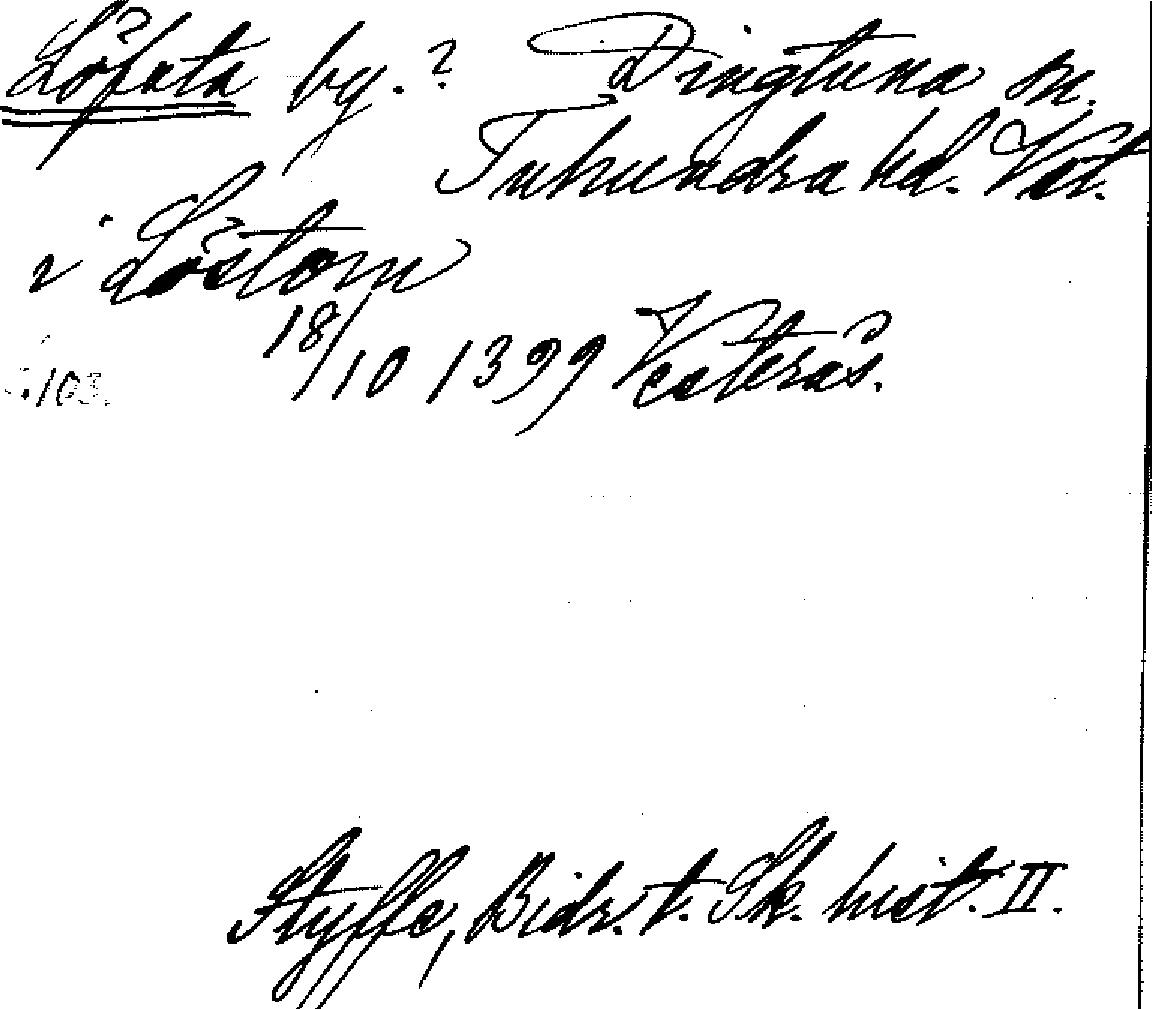 Löfsta by.? Dingtuna sn.
Tuhundra hd. Vstl.
i Löstom
18/10 1399 Vesterås.
103.
Styffe, Bidr. t. Sk. hist. II.